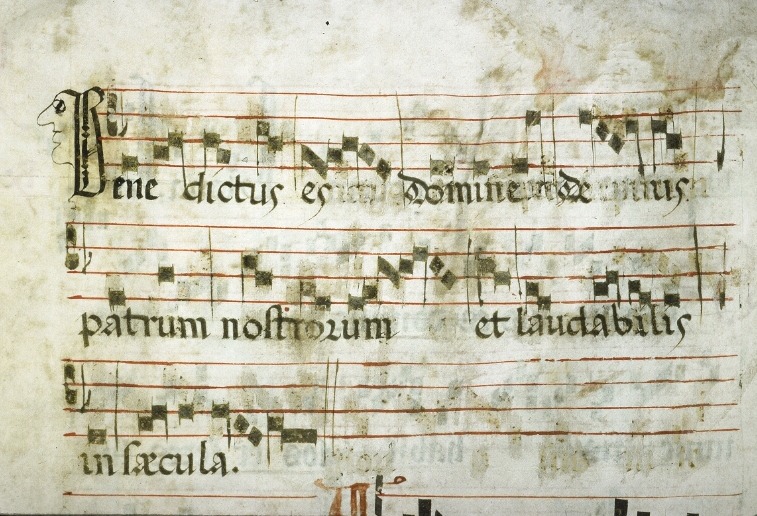 Bene dictus es Domine De
patrum nostrorum et laudabilis
in sæcula.